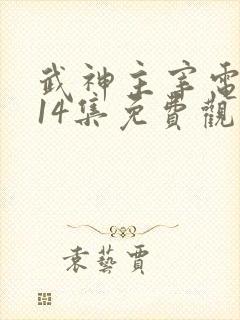 武神主宰電
14集免費觀
袁藝賈